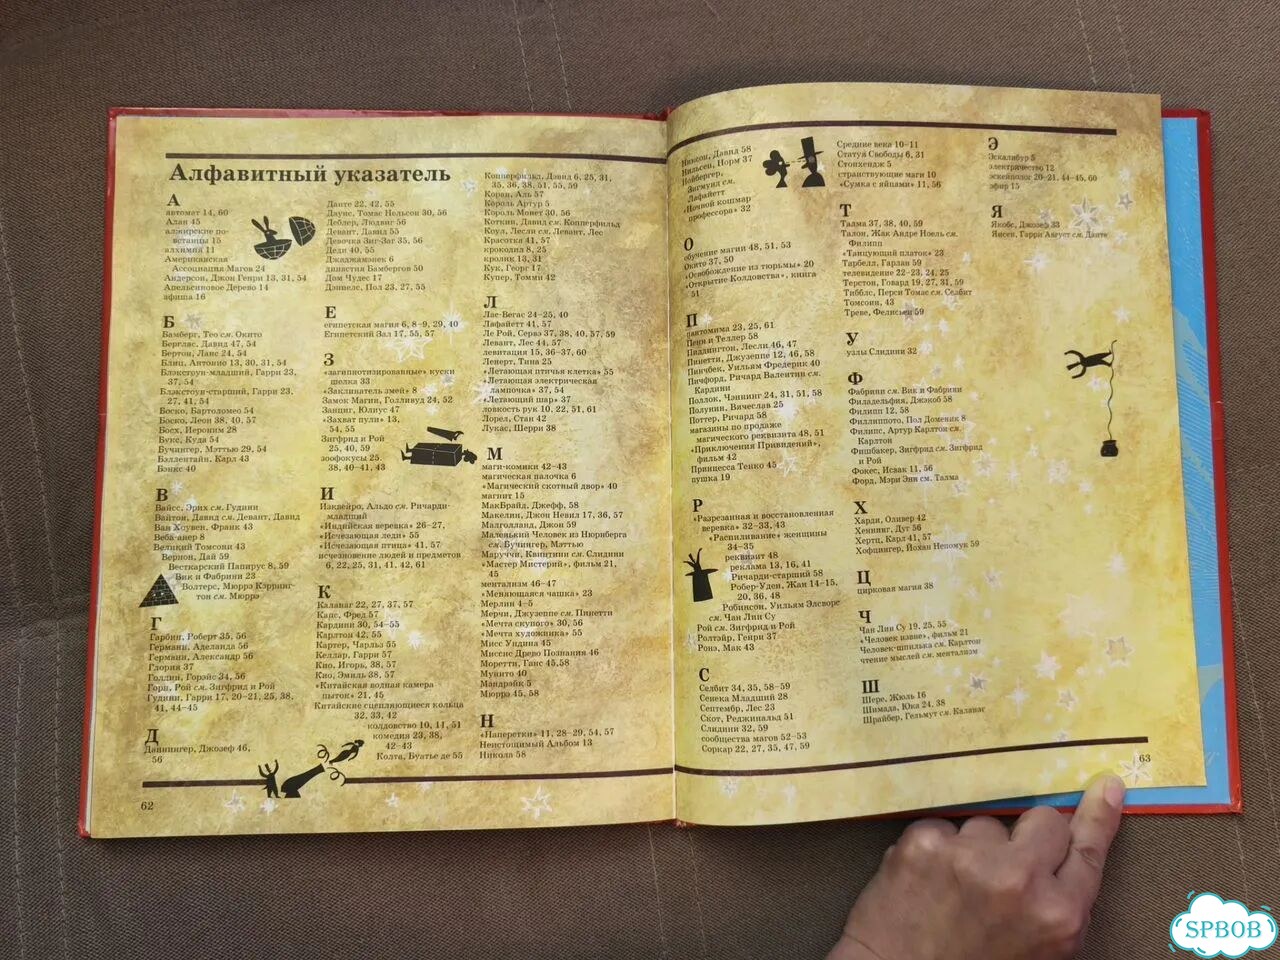 Алфавитный указатель
А
автомат 14, 60
Алан 45
алжирские по-
встанцы 15
алхимия 11
Американская
Ассоциация Магов 24
Андерсон, Джон Генри 13, 31, 54
Апельсиновое Дерево 14
афиша 16
Б
Бамберг, Тео см. Окито
Берглас, Давид 47, 54
Бертон, Ланс 24, 54
Блиц, Антонио 13, 30, 31, 54
Блэкстоун-младший, Гарри 23,
37, 54
Блэкстоун-старший, Гарри 23,
27, 41, 54
Боско, Бартоломео 54
Боско, Леон 38, 40, 57
Босх, Иероним 28
Букс, Куда 54
Бучингер, Мэттью 29, 54
Бэллентайн, Карл 43
Бэнкс 40
В
Вайсс, Эрих см. Гудини
Вайтон, Давид см. Девант, Давид
Ван Хоувен, Франк 43
Веба-анер 8
Великий Томсони 43
Вернон, Дай 59
Весткарский Папирус 8, 59
Вик и Фабрини 23
Волтерс, Мюррэ Кэрринг-
тон см. Мюррэ
Г
Гарбин, Роберт 35, 56
Германн, Аделаида 56
Германн, Александр 56
Глория 37
Голдин, Горэйс 34, 56
Горн, Рой см. Зигфрид и Рой
Гудини, Гарри 17, 20–21, 25, 38,
41, 44–45
Д
Даннингер, Джозеф 46,
56
Данте 22, 42, 55
Даунс, Томас Нельсон 30, 56
Деблер, Людвиг 56
Девант, Давид 55
Девочка Зиг-Заг 35, 56
Деди 40, 55
Джаджаманек 6
династия Бамбергов 50
Дом Чудес 17
Дэниелс, Пол 23, 27, 55
Е
египетская магия 6, 8–9, 29, 40
Египетский Зал 17, 55, 57
З
«загипнотизированные» куски
шелка 33
«Заклинатель змей» 8
Замок Магии, Голливуд 24, 52
Занциг, Юлиус 47
«Захват пули» 13,
54, 55
Зигфрид и Рой
25, 40, 59
зоофокусы 25,
38, 40–41, 43
И
Изквейро, Альдо см. Ричарди-
младший
«Индийская веревка» 26–27,
«Исчезающая леди» 55
«Исчезающая птица» 41, 57
исчезновение людей и предметов
6, 22, 25, 31, 41, 42, 61
К
Каланаг 22, 27, 37, 57
Капс, Фред 57
Кардини 30, 54–55
Карлтон 42, 55
Картер, Чарльз 55
Келлар, Гарри 57
Кио, Игорь, 38, 57
Кио, Эмиль 38, 57
«Китайская водная камера
пыток» 21, 45
Китайские сцепляющиеся кольца
32, 33, 42
колдовство 10, 11, 51
комедия 23, 38,
42–43
Колта, Буатье де 55
Копперфильд, Давид 6, 25, 31,
35, 36, 38, 51, 55, 59
Коран, Аль 57
Король Артур 5
Король Монет 30, 56
Коткин, Давид см. Копперфильд
Коул, Лесли см. Левант, Лес
Красотка 41, 57
крокодил 8, 25
кролик 13, 31
Кук, Георг 17
Купер, Томми 42
Л
Лас-Вегас 24–25, 40
Лафайетт 41, 57
Ле Рой, Сервэ 37, 38, 40, 57, 59
Левант, Лес 44, 57
левитация 15, 36–37, 60
Ленерт, Тина 25
«Летающая птичья клетка» 55
«Летающая электрическая
лампочка» 37, 54
«Летающий шар» 37
ловкость рук 10, 22, 51, 61
Лорел, Стан 42
Лукас, Шерри 38
М
маги-комики 42–43
магическая палочка 6
«Магический скотный двор» 40
магнит 15
МакБрайд, Джефф, 58
Макелин, Джон Невил 17, 36, 57
Малголланд, Джон 59
Маленький Человек из Нюрнберга
см. Бучингер, Мэттью
Маруччи, Квинтини см. Слидини
«Мастер Мистерий», фильм 21,
45
ментализм 46–47
«Меняющаяся чашка» 23
Мерлин 4–5
Мерчи, Джузеппе см. Пинетти
«Мечта скупого» 30, 56
«Мечта художника» 55
Мисс Ундина 45
Миссис Древо Познания 46
Моретти, Ганс 45,58
Мунито 40
Мэндрэйк 5
Мюррэ 45, 58
Н
«Наперстки» 11, 28–29, 54, 57
Неистощимый Альбом 13
Никола 58
62
Никсон, Давид 58
Нильсен, Норм 37
Нойбергер,
Зигмунд см.
Лафайетт
«Ночной кошмар
профессора» 32
О
обучение магии 48, 51, 53
Окито 37, 50
«Освобождение из тюрьмы» 20
«Открытие Колдовства», книга
51
П
пантомима 23, 25, 61
Пенн и Теллер 58
Пиддингтон, Лесли 46, 47
Пинетти, Джузеппе 12, 46, 58
Пинчбек, Уильям Фредерик 40
Пичфорд, Ричард Валентин см.
Кардини
Поллок, Чэннинг 24, 31, 51, 58
Полунин, Вячеслав 25
Поттер, Ричард 58
магазины по продаже
магического реквизита 48, 51
«Приключения Привидений»,
фильм 42
Принцесса Тенко 45
пушка 19
Р
«Разрезанная и восстановленная
веревка» 32–33, 43
«Распиливание» женщины
34–35
реквизит 48
реклама 13, 16, 41
Ричарди-старший 58
Робер-Уден, Жан 14–15,
20, 36, 48
Робинсон, Уильям Элсворс
см. Чан Лин Су
Рой см. Зигфрид и Рой
Ролтэйр, Генри 37
Ронэ, Мак 43
С
Селбит 34, 35, 58–59
Сенека Младший 28
Септембр, Лес 23
Скот, Реджинальд 51
Слидини 32, 59
сообщества магов 52–53
Соркар 22, 27, 35, 47, 59
Средние века 10–11
Статуя Свободы 6, 31
Стонхендж 5
странствующие маги 10
«Сумка с яйцами» 11, 56
Т
Талма 37, 38, 40, 59
Талон, Жак Андре Ноель см.
Филипп
«Танцующий платок» 23
Тарбелл, Гарлан 59
телевидение 22–23, 24, 25
Терстон, Говард 19, 27, 31, 59
Тибблс, Перси Томас см. Селбит
Томсони, 43
Треве, Фелисьен 59
У
узлы Слидини 32
Ф
Фабрини см. Вик и Фабрини
Филадельфия, Джэкоб 58
Филипп 12, 58
Филлиппото, Пол Доменик 8
Филипс, Артур Карлтон см.
Карлтон
Фишбакер, Зигфрид см. Зигфрид
и Рой
Фокес, Исаак 11, 56
Форд, Мэри Энн см. Талма
Х
Харди, Оливер 42
Хеннинг, Дуг 56
Хертц, Карл 41, 57
Хофцингер, Йохан Непомук 59
Ц
цирковая магия 38
Ч
Чан Лин Су 19, 25, 55
«Человек извне», фильм 21
Человек-шпилька см. Карлтон
чтение мыслей см. ментализм
Ш
Шере, Жюль 16
Шимада, Юка 24, 38
Шрайбер, Гельмут см. Каланаг
Э
Эскалибур 5
электричество 12
эскейполог 20–21, 44–45, 60
эфир 15
Я
Якобс, Джозеф 33
Янсен, Гарри Август см. Данте
63
SPBOB